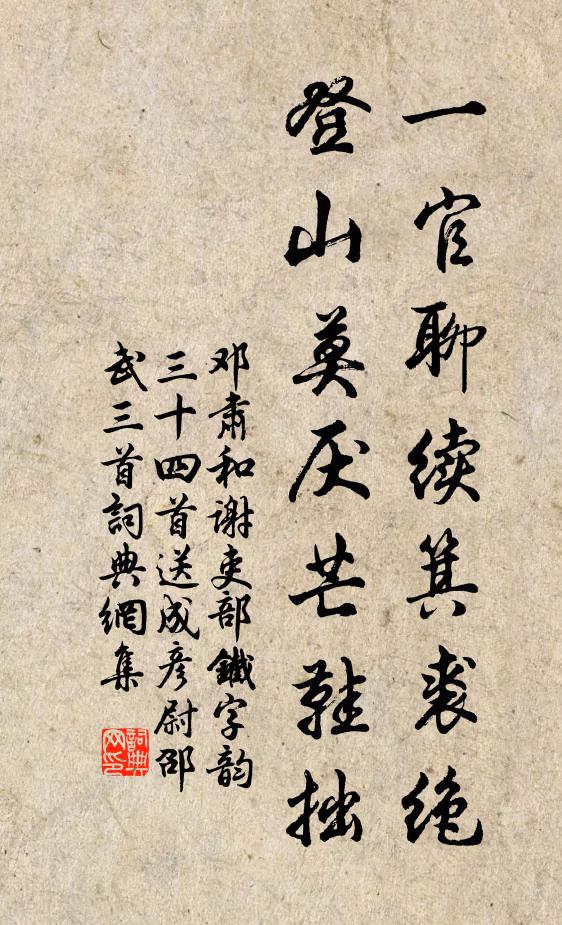 一官聊续箕裘绝
登山莫厌芒鞋拙
邓肃和谢吏部鐵字韵
三十四首送成彦尉邵
武三首詞典網集
詞典
网印